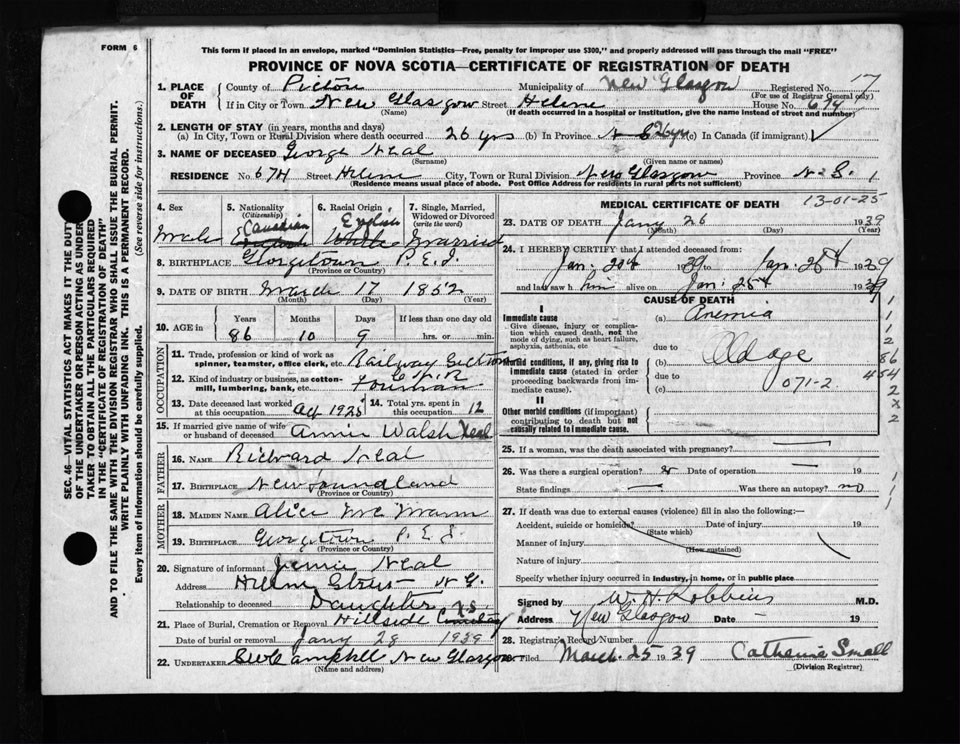 FORM 6
This form if placed in an envelope, marked "Dominion Statistics—Free, penalty for improper use $300," and properly addressed will pass through the mail "FREE"
PROVINCE OF NOVA SCOTIA—CERTIFICATE OF REGISTRATION OF DEATH
SEC. 46—VITAL STATISTICS ACT MAKES IT THE DUTY
OF THE UNDERTAKER OR PERSON ACTING AS UNDER-
TAKER TO OBTAIN ALL THE PARTICULARS REQUIRED
IN THE "CERTIFICATE OF REGISTRATION OF DEATH"
AND TO FILE THE SAME WITH THE DIVISION REGISTRAR WHO SHALL ISSUE THE BURIAL PERMIT.
WRITE PLAINLY WITH UNFADING INK. THIS IS A PERMANENT RECORD.
Every item of information should be carefully supplied. (See reverse side for instructions.)
1. PLACE OF DEATH County of Pictou Municipality of New Glasgow Registered No. 17
(For use of Registrar General only)
If in City or Town New Glasgow Street Helene House No. 674
(If death occurred in a hospital or institution, give the name instead of street and number)
2. LENGTH OF STAY (in years, months and days)
(a) In City, Town or Rural Division where death occurred 26 yrs (b) In Province 26 yrs (c) In Canada (if immigrant)
3. NAME OF DECEASED George Neal
(Surname) (Given name or names)
RESIDENCE No. 674 Street Helene City, Town or Rural Division New Glasgow Province N.S. 1
(Residence means usual place of abode. Post Office Address for residents in rural parts not sufficient)
4. Sex 5. Nationality (Citizenship) 6. Racial Origin 7. Single, Married, Widowed or Divorced (write the word)
Male Canadian English White Married
8. BIRTHPLACE Georgetown P.E.I.
(Province or Country)
9. DATE OF BIRTH March 17 1852
(Month) (Day) (Year)
10. AGE in Years Months Days If less than one day old
86 10 9 hrs. or min.
OCCUPATION
11. Trade, profession or kind of work as spinner, teamster, office clerk, etc. Railway Section
12. Kind of industry or business, as cotton-mill, lumbering, bank, etc. C.N.R Foreman
13. Date deceased last worked at this occupation 1925 14. Total yrs. spent in this occupation 12
15. If married give name of wife or husband of deceased Annie Walsh Neal
FATHER
16. NAME Richard Neal
17. BIRTHPLACE Newfoundland
(Province or Country)
MOTHER
18. MAIDEN NAME Alice
19. BIRTHPLACE Georgetown P.E.I.
(Province or Country)
20. Signature of informant Jennie Neal
Address Helene Street N.G.
Relationship to deceased Daughter
21. Place of Burial, Cremation or Removal Hillside Cemetery N.S.
Date of burial or removal Jany 28 1939
22. UNDERTAKER Campbell New Glasgow
(Name and address)
MEDICAL CERTIFICATE OF DEATH 13-01-25
23. DATE OF DEATH Jany 26 1939
(Month) (Day) (Year)
24. I HEREBY CERTIFY that I attended deceased from:
Jan. 20th 39 to Jan. 25th 1939
and last saw him alive on Jan: 25th 1939
CAUSE OF DEATH
I
Immediate cause
Give disease, injury or complication which caused death, not the mode of dying, such as heart failure, asphyxia, asthenia, etc
(a) Anemia
due to
Morbid conditions, if any, giving rise to immediate cause (stated in order proceeding backwards from immediate cause).
(b) Old age
due to 071-2
(c)
II
Other morbid conditions (if important) contributing to death but not causally related to immediate cause.
1
1
1
2
86
454
2
x
2
25. If a woman, was the death associated with pregnancy? —
26. Was there a surgical operation? Date of operation — 19
State findings — Was there an autopsy? no
27. If death was due to external causes (violence) fill in also the following:—
Accident, suicide or homicide? Date of injury 19
(State which)
Manner of injury
(How sustained)
Nature of injury
Specify whether injury occurred in industry, in home, or in public place
Signed by W. H. Robbins M.D.
Address New Glasgow Date — 19
28. Registrar's Record Number
Filed March 25 1939 Catherine Small
(Division Registrar)